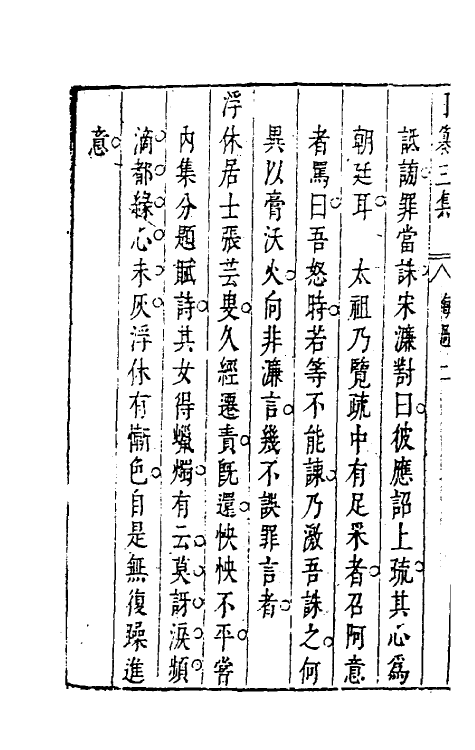 纂三集
詆謗罪當誅宋濂對曰彼應詔上疏其心為
朝廷耳　太祖乃覽疏中有足采者召阿意
者罵曰吾怒時若等不能諫乃激吾誅之何
異以膏沃火向非濂言幾不誤罪言者
浮休居士張芸叟久經遷責既還怏怏不平嘗
內集分題賦詩其女得蠟燭有云莫訝淚頻
滴都緣心未灰浮休有慚色自是無復躁進
意